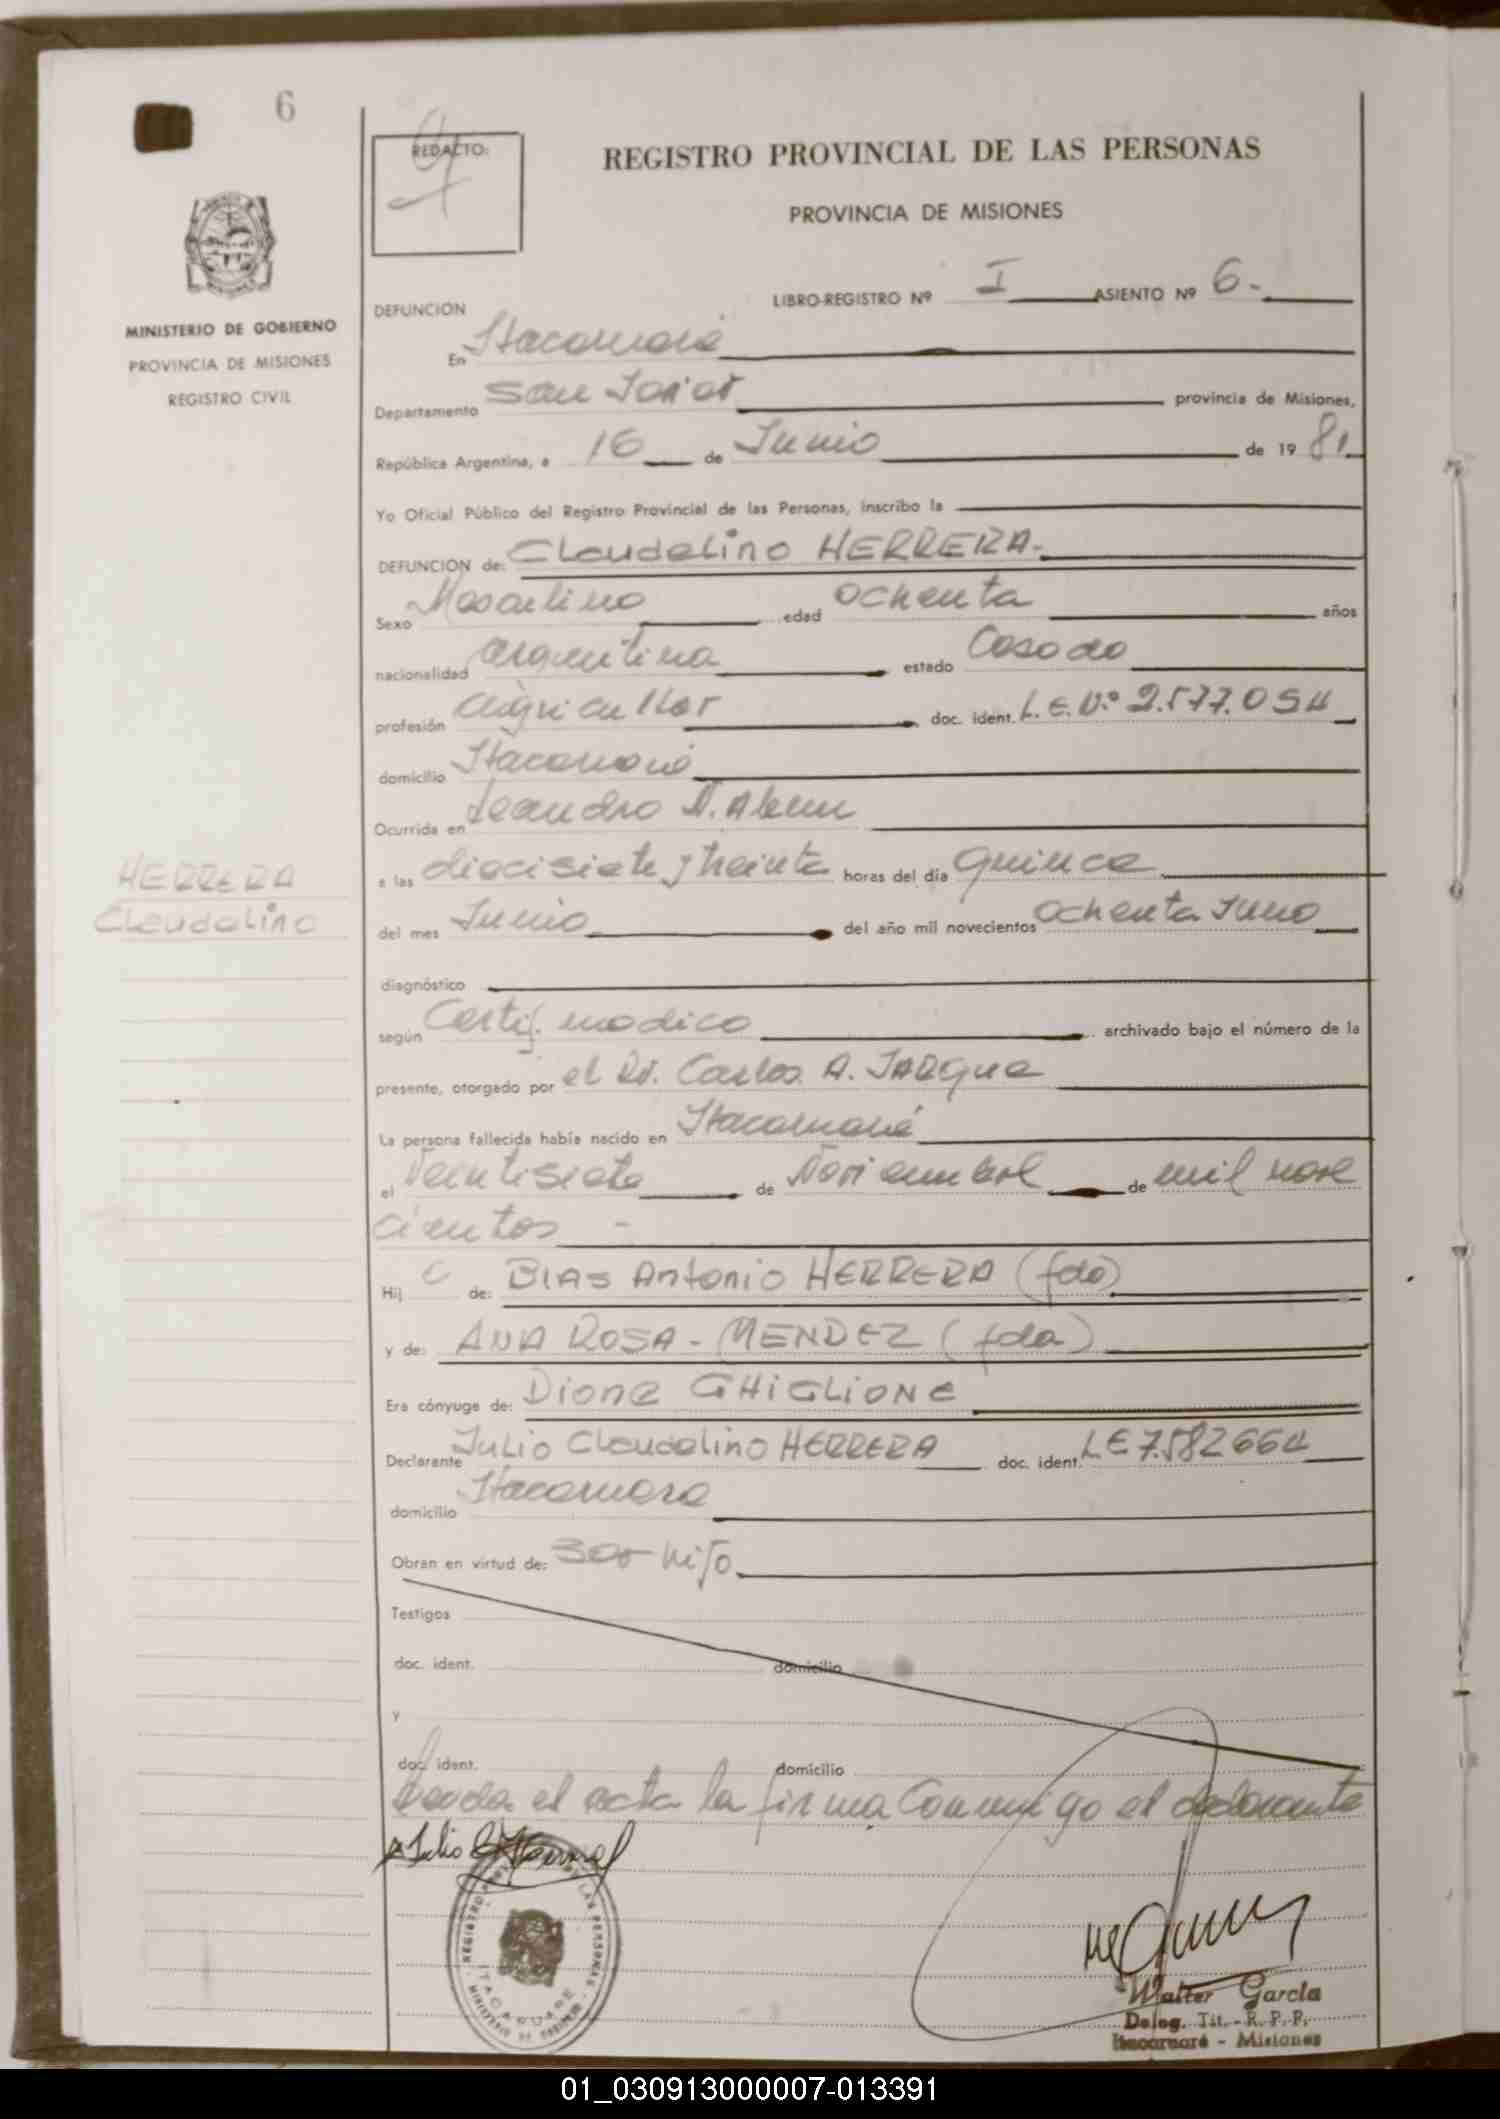 6
REDACTO:
REGISTRO PROVINCIAL DE LAS PERSONAS
PROVINCIA DE MISIONES
MINISTERIO DE GOBIERNO
PROVINCIA DE MISIONES
REGISTRO CIVIL
LIBRO-REGISTRO Nº I ASIENTO Nº 6.-
DEFUNCION
En Itacaruaré
Departamento San Javier provincia de Misiones,
República Argentina, a 16 de Junio de 19 81.
Yo Oficial Público del Registro Provincial de las Personas, inscribo la
DEFUNCION de: Claudelino HERRERA.-
Sexo Masculino edad ochenta años
nacionalidad argentina estado Casado
profesión agricultor doc. ident. L.E.Nº 2.577.054
domicilio Itacaruaré
Ocurrida en Leandro N. Alem
a las diecisiete y treinta horas del día quince
HERRERA
Claudelino
del mes Junio del año mil novecientos ochenta y uno
diagnóstico
según Certif. medico archivado bajo el número de la
presente, otorgado por el Dr. Carlos A. JARque
La persona fallecida había nacido en Itacaruaré
el Veintisiete de Noviembre de mil nove
cientos -
Hij o de: BLAS Antonio HERRERA (fdo)
y de: ANA ROSA - MENDEZ (fda)
Era cónyuge de: Dione GHIGLIONE
Declarante Julio Claudelino HERRERA doc. ident. LE 7.582664
domicilio Itacaruare
Obran en virtud de: ser hijo
Testigos
doc. ident. domicilio
y
doc. ident. domicilio
Leeda el acta la firma conmigo el declarante
Julio C Herrera
REGISTRO PROV. DE LAS PERSONAS
ITACARUARE
MINISTERIO DE GOBIERNO
Walter García
Deleg. Tit. - R. P. P.
Itacaruaré - Misiones
01_030913000007-013391